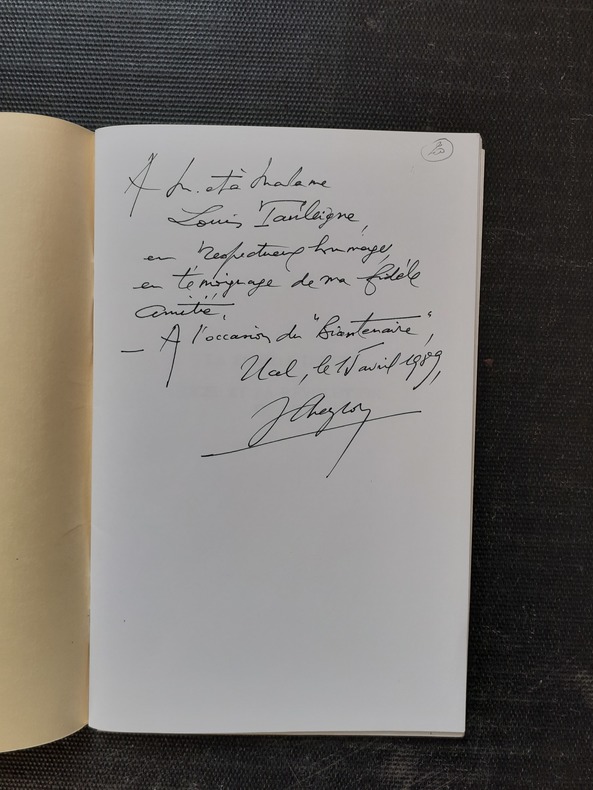 A M. et à Madame
Louis Tauleigne,
en respectueux hommage,
en témoignage de ma fidèle
amitié,
— A l'occasion du "Bicentenaire",
Ucel, le 15 avril 1989,